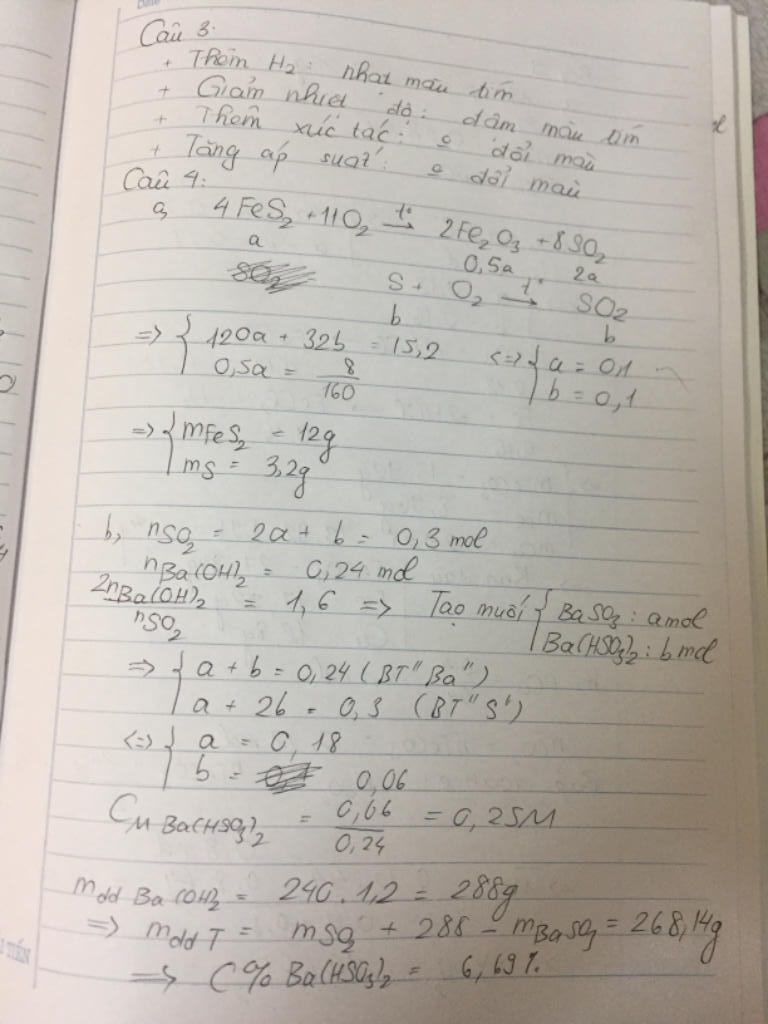 Câu 3:
+ Thêm H2: nhạt màu tím
+ Giảm nhiệt độ: đậm màu tím
+ Thêm xúc tác: o đổi màu
+ Tăng áp suất: o đổi màu
Câu 4:
a, 4FeS2 + 11O2 →t° 2Fe2O3 + 8SO2
a 0,5a 2a
S + O2 →t° SO2
b b
=> { 120a + 32b = 15,2 <=> { a = 0,1
0,5a = 8/160 b = 0,1
=> { mFeS2 = 12g
mS = 3,2g
b, nSO2 = 2a + b = 0,3 mol
nBa(OH)2 = 0,24 mol
2nBa(OH)2/nSO2 = 1,6 => Tạo muối { BaSO3: a mol
Ba(HSO3)2: b mol
=> { a + b = 0,24 (BT "Ba")
a + 2b = 0,3 (BT "S")
<=> { a = 0,18
b = 0,06
CM Ba(HSO3)2 = 0,06/0,24 = 0,25M
mdd Ba(OH)2 = 240.1,2 = 288g
=> mdd T = mSO2 + 288 - mBaSO3 = 268,14g
=> C% Ba(HSO3)2 = 6,69%